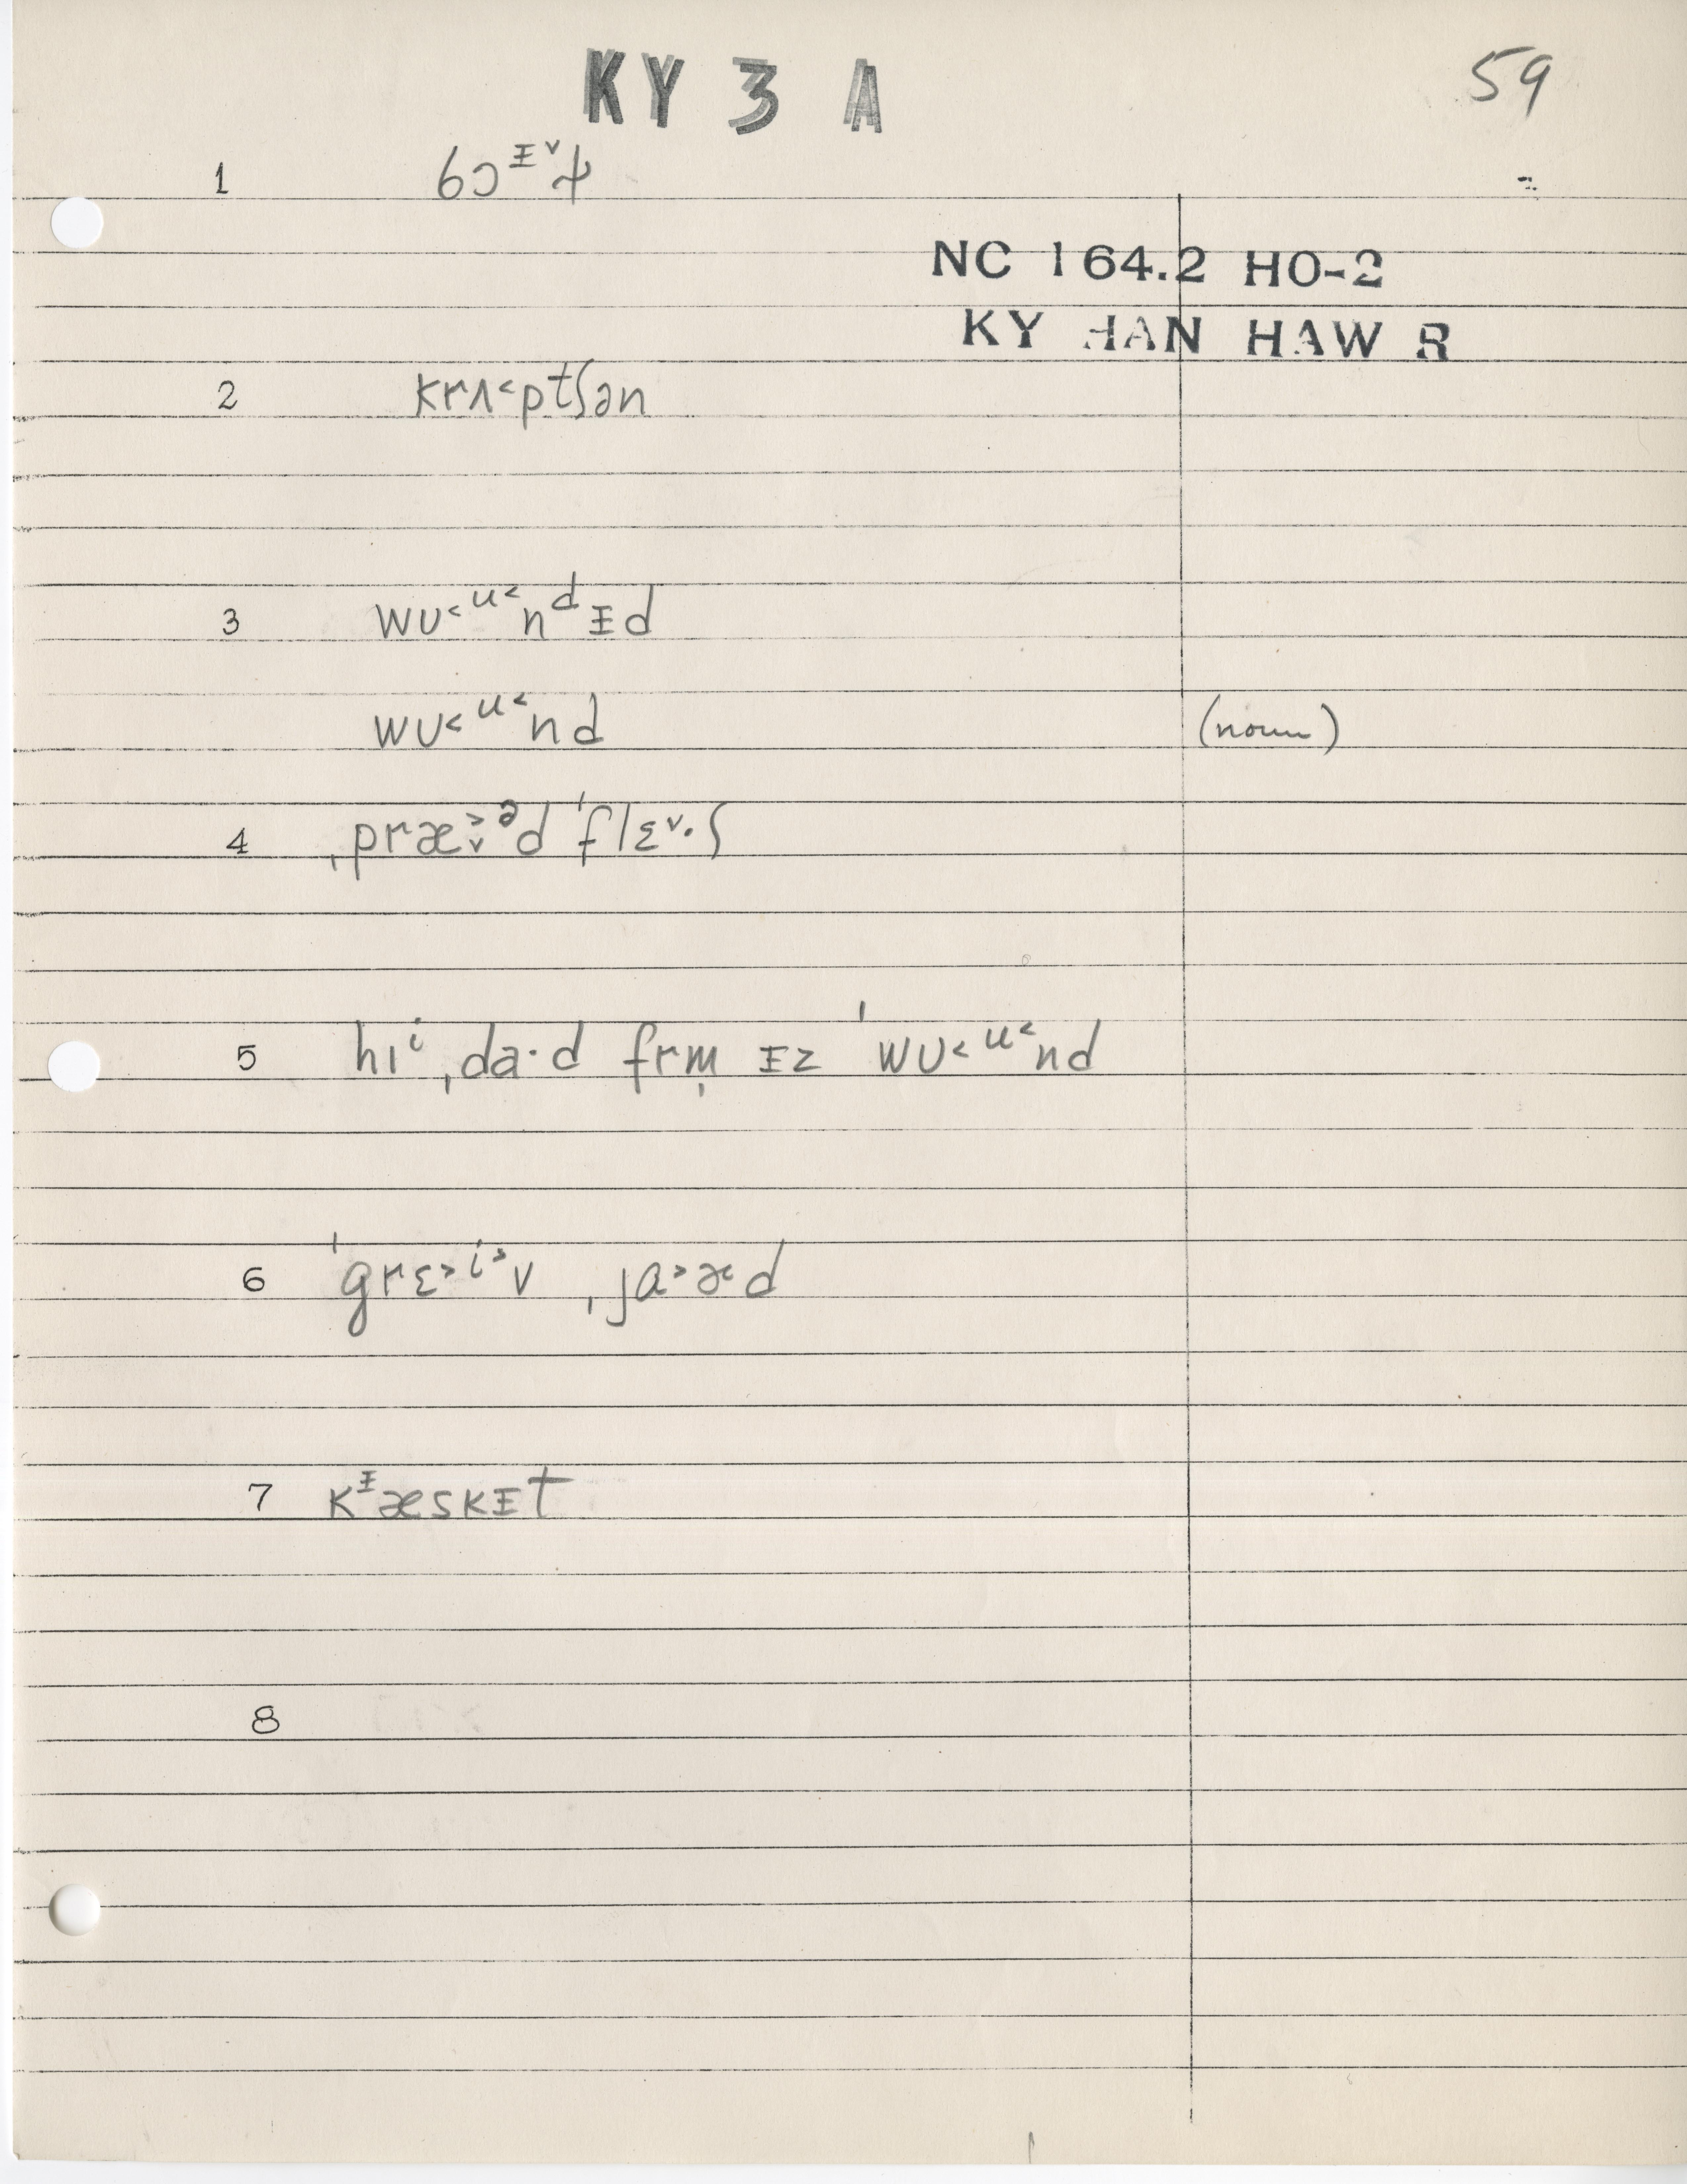 KY 3 A
59
1 bɔᵻ˅ɫ
NC 164.2 HO-2
KY HAN HAW R
2 krʌ˂ptʃən
3 wʊ˂ᵘ˂nᵈᵻd
wʊ˂ᵘ˂nd (noun)
4 ˌpræ̬˃·ᵊd ˈflɛ˅·ʃ
5 hɪⁱ ˌda·d frm̩ ᵻz ˈwʊ˂ᵘ˂nd
6 ˈgrɛ˃ⁱ˃v ˌjɑ˃ɚd
7 kᵻæskᵻt
8